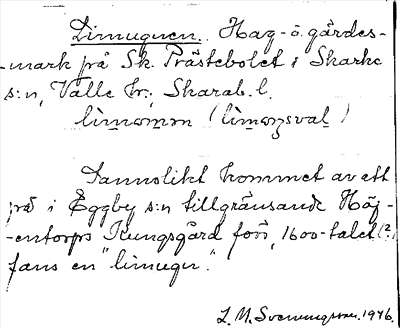 Limugnen. Hag- o. gärdes-
-mark på Sk. Prästebolet i Skarke
s:n, Valle hr., Skarab. l.
Sannolikt kommet av att
på i Eggby s:n tillgränsande Höj-
-entorps Kungsgård förr, 1600-talet (?),
fans en "limugn".
L. M. Svenungsson 1946.